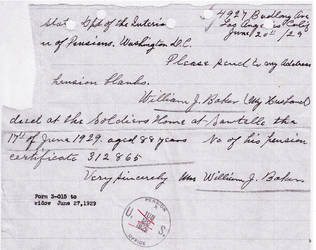 4927 Budlong Ave
Los Angeles Calif
June/20th/29
Dept of the Interio
u of Pensions. Washington D.C.
Please send to my Address
pension blanks.
William J. Baker (My Husband)
died at the Soldiers Home at Sawtelle the
17th of June 1929. aged 88 years No of his pension
certificate 312865
Very sincerely Mrs William J. Baker
Form 3-015 to
widow June 27,1929
PENSION
U. S.
OFFICE